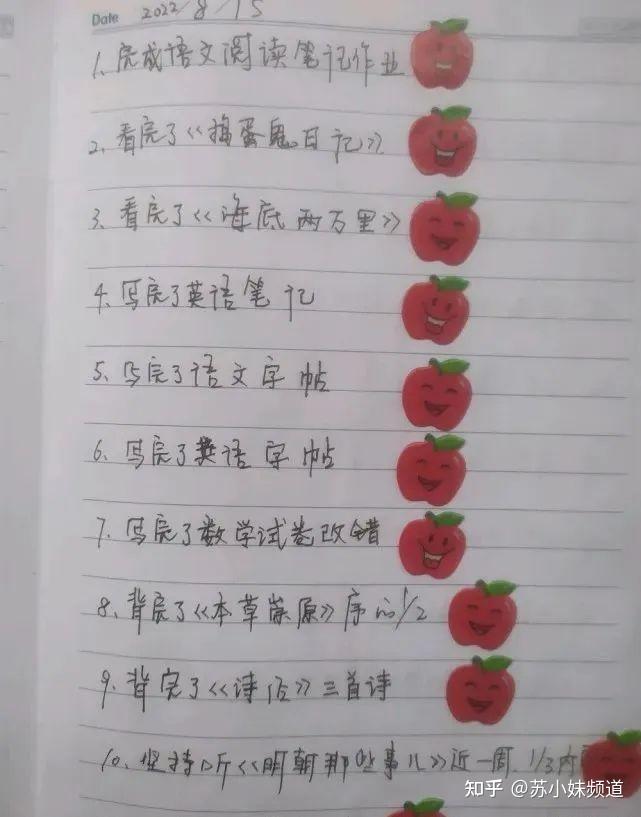 Date 2022/8/15
1、完成语文阅读笔记作业
2、看完了《捣蛋鬼日记》
3、看完了《海底两万里》
4、写完了英语笔记
5、写完了语文字帖
6、写完了英语字帖
7、写完了数学试卷改错
8、背完了《本草崇原》序的1/2
9、背完了《诗经》三首诗
10、坚持听《明朝那些事儿》近一周，1/3内
知乎 @苏小妹频道